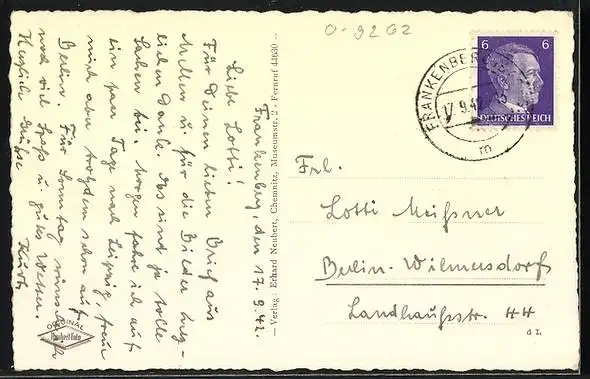 Frankenberg, den 17.9.42.
Liebe Lotti!
Für Deinen lieben Brief aus
u. für die Bilder herz-
lichen Dank. Das sind ja tolle
Sachen bei. Morgen fahre ich auf
ein paar Tage nach Leipzig, freue
mich aber trotzdem sehr auf
Berlin. Für Sonntag wünsche ich
noch viel Spaß u. gutes Wetter.
Herzliche Grüsse
Kurt
ORIGINAL
— Verlag: Erhard Neubert, Chemnitz, Museumstr. 2 · Fernruf 44630 —
0-9262
6 6
DEUTSCHES REICH
FRANKENBERG
17.9.42
m
Frl.
Lotti Meißner
Berlin-Wilmersdorf
Landhausstr. 44
d L